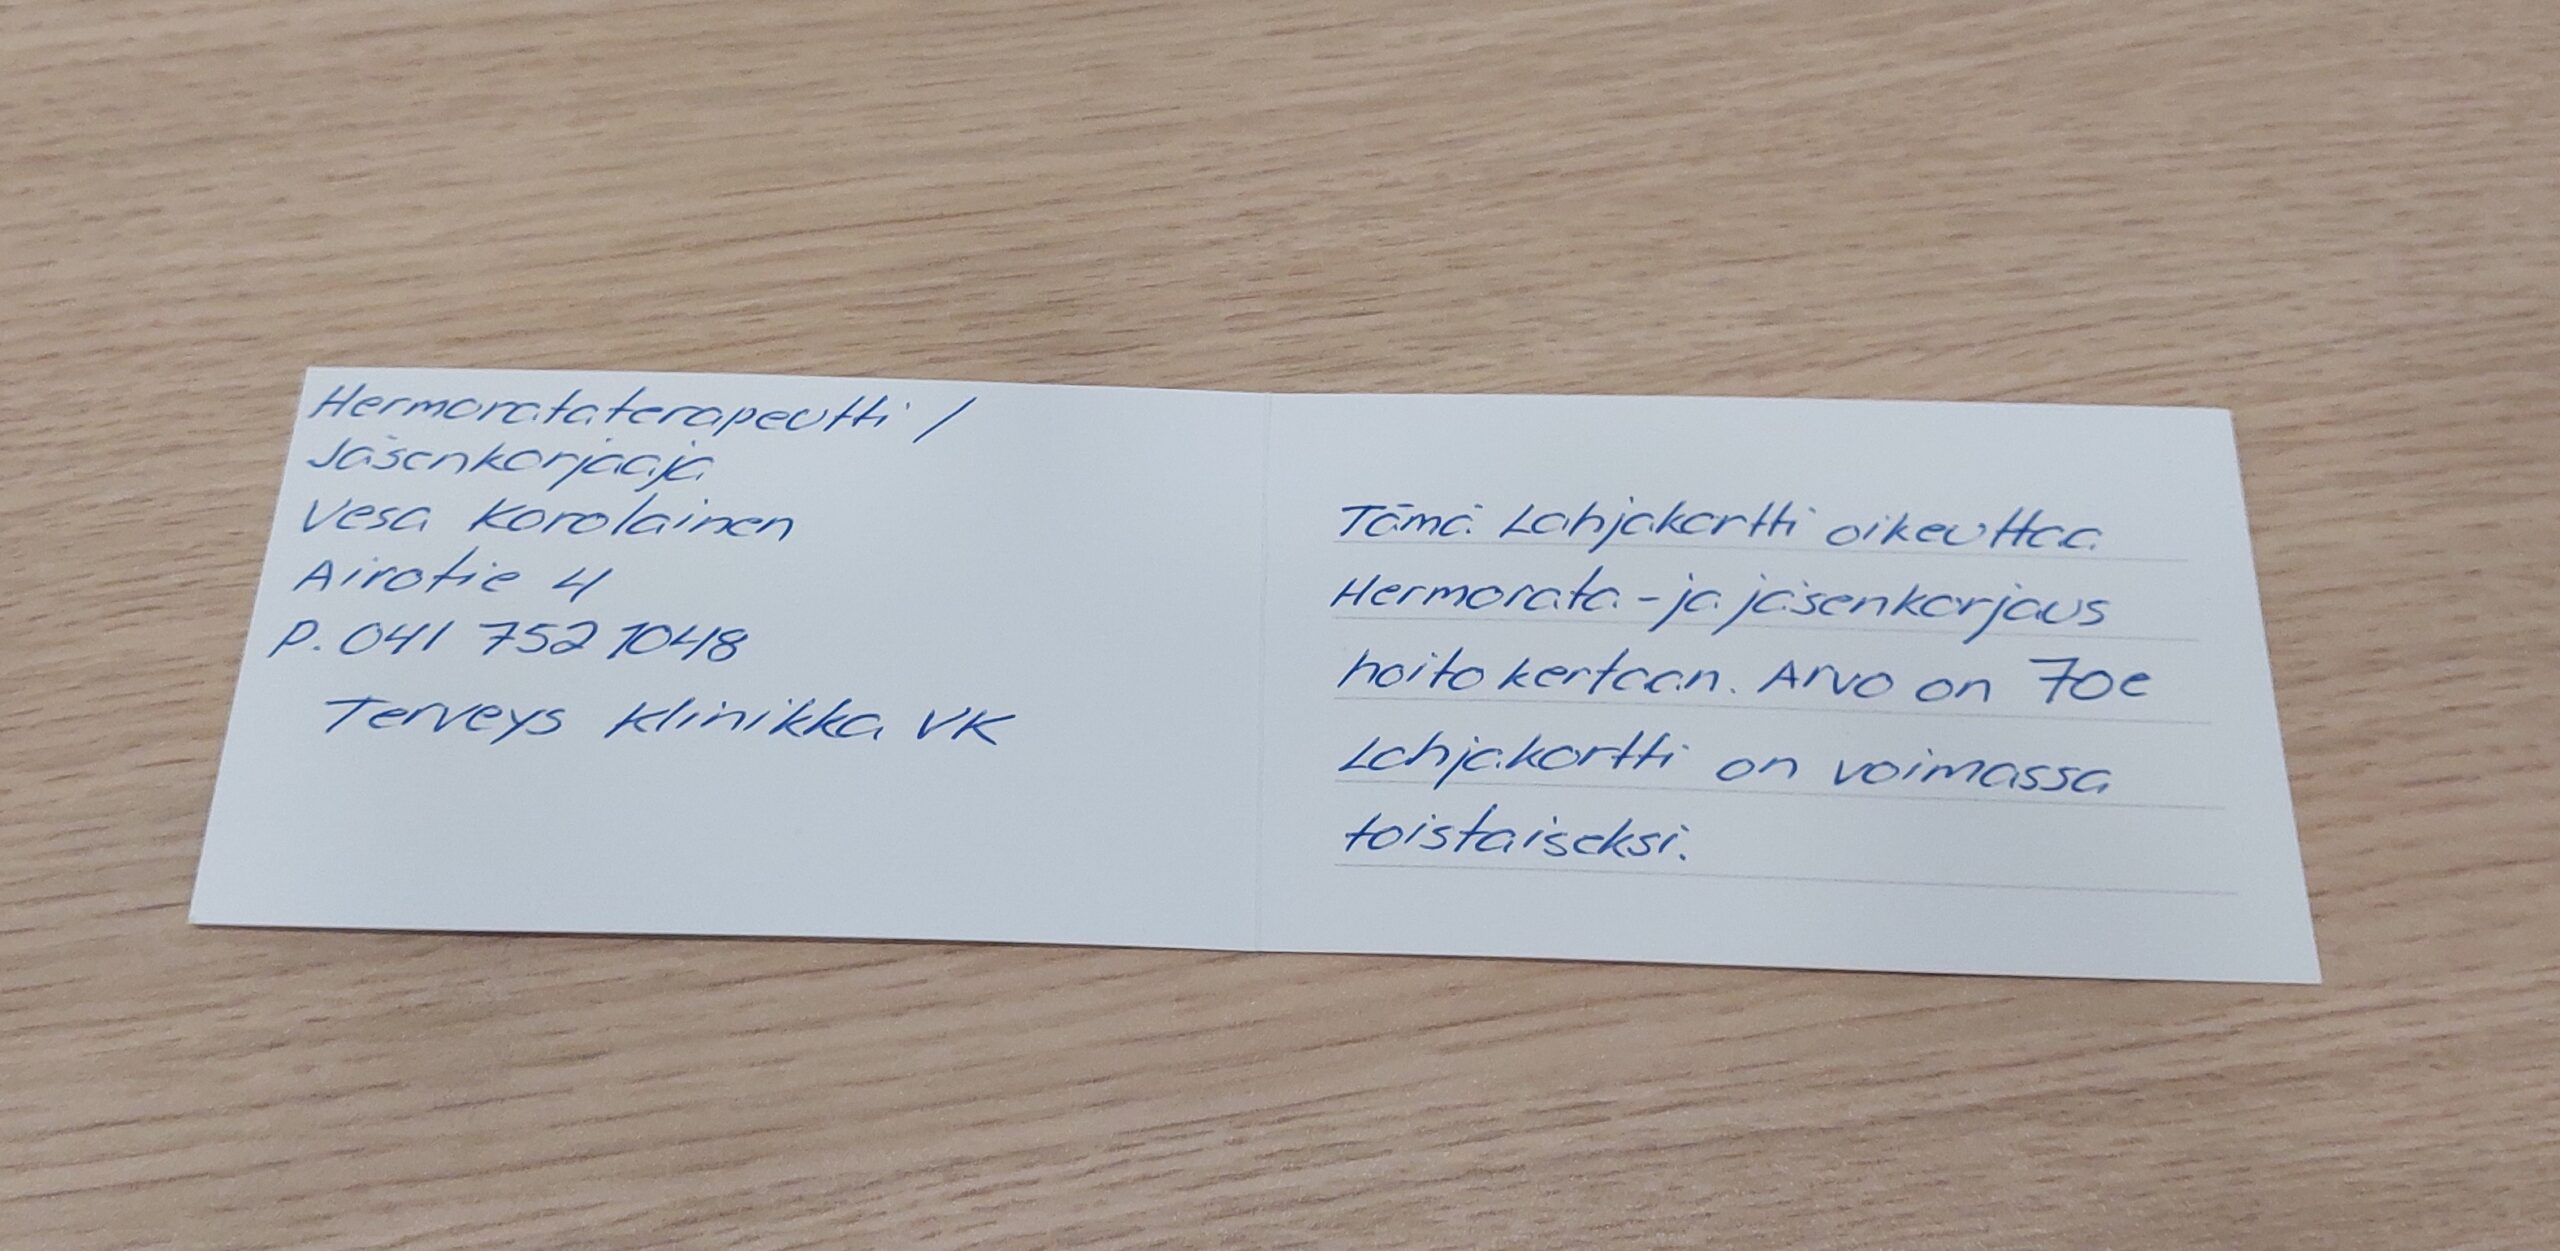 Hermorataterapeutti /
Jäsenkorjaaja
Vesa Karolainen
Airotie 4
P. 041 752 1048
Terveys Klinikka VK
Tämä Lahjakortti oikeuttaa
Hermorata - ja jäsenkorjaus
hoito kertaan. Arvo on 70e
Lahjakortti on voimassa
toistaiseksi.